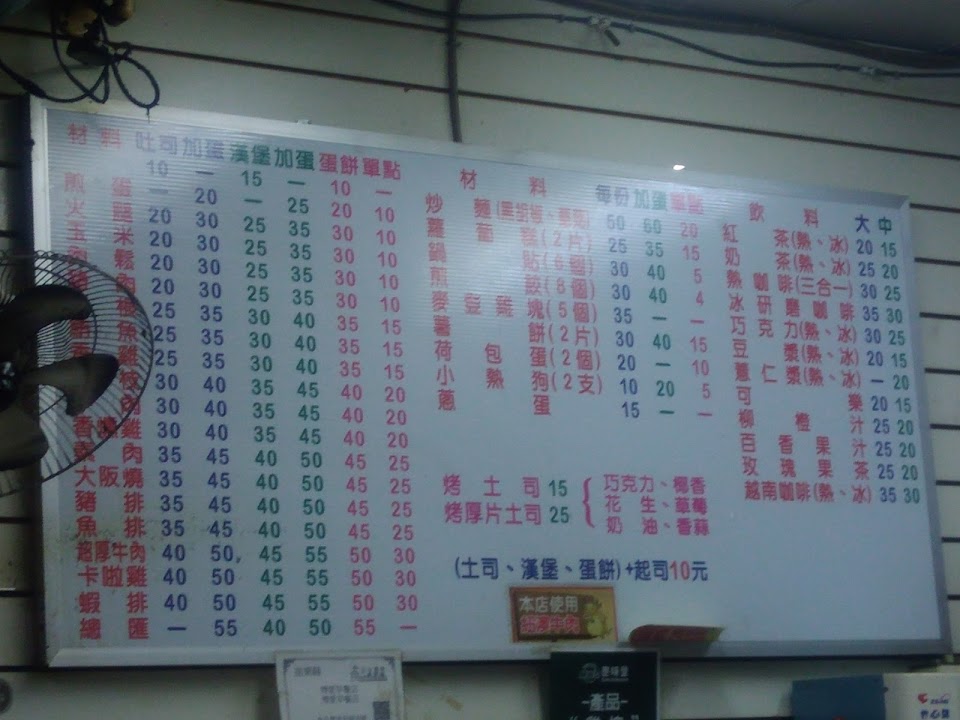 材料 吐司 加蛋 漢堡 加蛋 蛋餅 單點
10 — 15 — 10 —
煎蛋 — 20 — 25 20 10
火 20 30 25 35 30 10
玉米 20 30 25 35 30 10
鬆 20 30 25 35 30 10
肉 20 30 25 35 30 10
25 35 30 40 35 15
魚 25 35 30 40 35 15
雞 25 35 30 40 35 15
30 40 35 45 40 20
肉 30 40 35 45 40 20
香 雞 30 40 35 45 40 20
肉 35 45 40 50 45 25
大阪燒 35 45 40 50 45 25
豬排 35 45 40 50 45 25
魚排 35 45 40 50 45 25
超厚牛肉 40 50 45 55 50 30
卡啦雞 40 50 45 55 50 30
蝦排 40 50 45 55 50 30
總匯 — 55 40 50 55 —
材料 每份 加蛋 單點
炒麵(黑胡椒、蘑菇) 50 60 20
蘿蔔糕(2片) 25 35 15
鍋貼(6個) 30 40 5
煎餃(8個) 30 40 4
麥登雞塊(5個) 35 — —
薯餅(2片) 30 40 15
荷包蛋(2個) 20 — 10
小熱狗(2支) 10 20 5
蔥蛋 15 — —
烤土司 15
烤厚片土司 25
巧克力、椰香
花生、草莓
奶油、香蒜
(土司、漢堡、蛋餅)+起司10元
飲料 大 中
紅茶(熱、冰) 20 15
奶茶(熱、冰) 25 20
熱咖啡(三合一) 30 25
冰研磨咖啡 35 30
巧克力(熱、冰) 30 25
豆漿(熱、冰) 20 15
薏仁漿(熱、冰) — 20
可樂 20 15
柳橙汁 25 20
百香果汁 25 20
玫瑰果茶 25 20
越南咖啡(熱、冰) 35 30
本店使用
超厚牛肉
—產品—